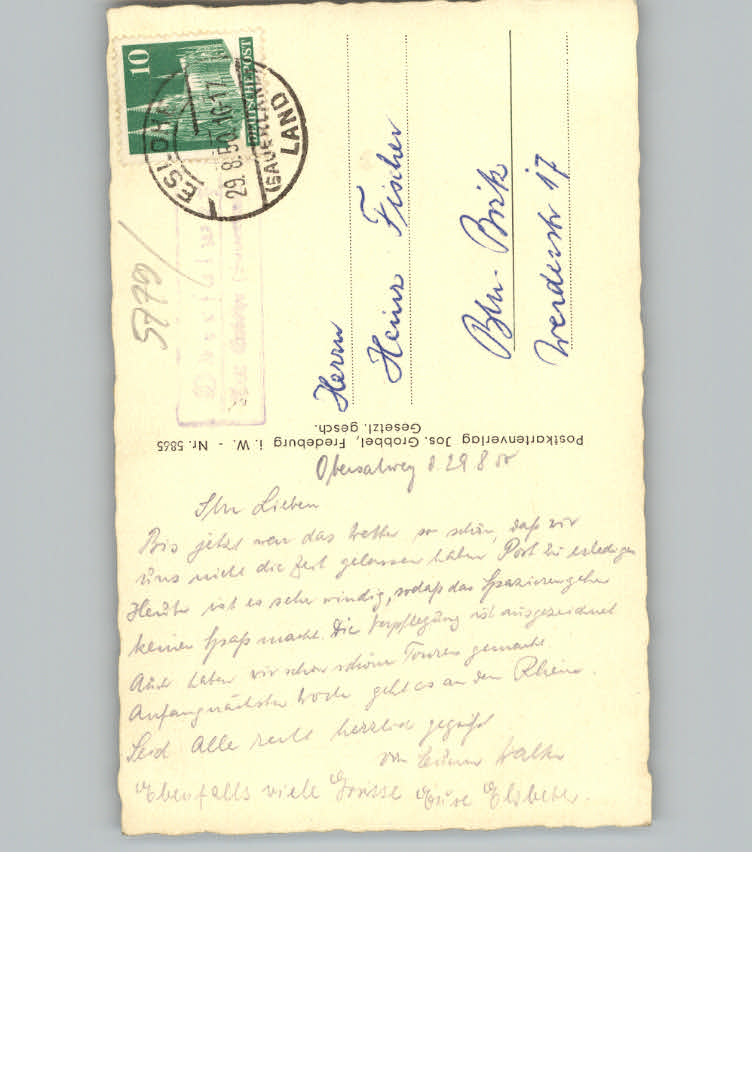 10
DEUTSCHE POST
ESLOHE
29.8.50.16-17
(SAUERLAND)
LAND
5779/
Herrn
Heinz Fischer
Bln-Britz
Werderstr 17
Postkartenverlag Jos. Grobbel, Fredeburg i. W. - Nr. 5865
Gesetzl. gesch.
Obersalwey d. 29 8 50
Ihr Lieben
Bis jetzt war das Wetter so schön, daß wir
uns nicht die Zeit gelassen haben Post zu erledigen
Heute ist es sehr windig, sodaß das Spazierengehen
keinen Spaß macht. Die Verpflegung ist ausgezeichnet
Auch haben wir schon schöne Touren gemacht
Anfang nächster Woche geht es an den Rhein.
Seid Alle recht herzlich gegrüßt
von Eurem Walter
Ebenfalls viele Grüsse Eure Elsbeth.